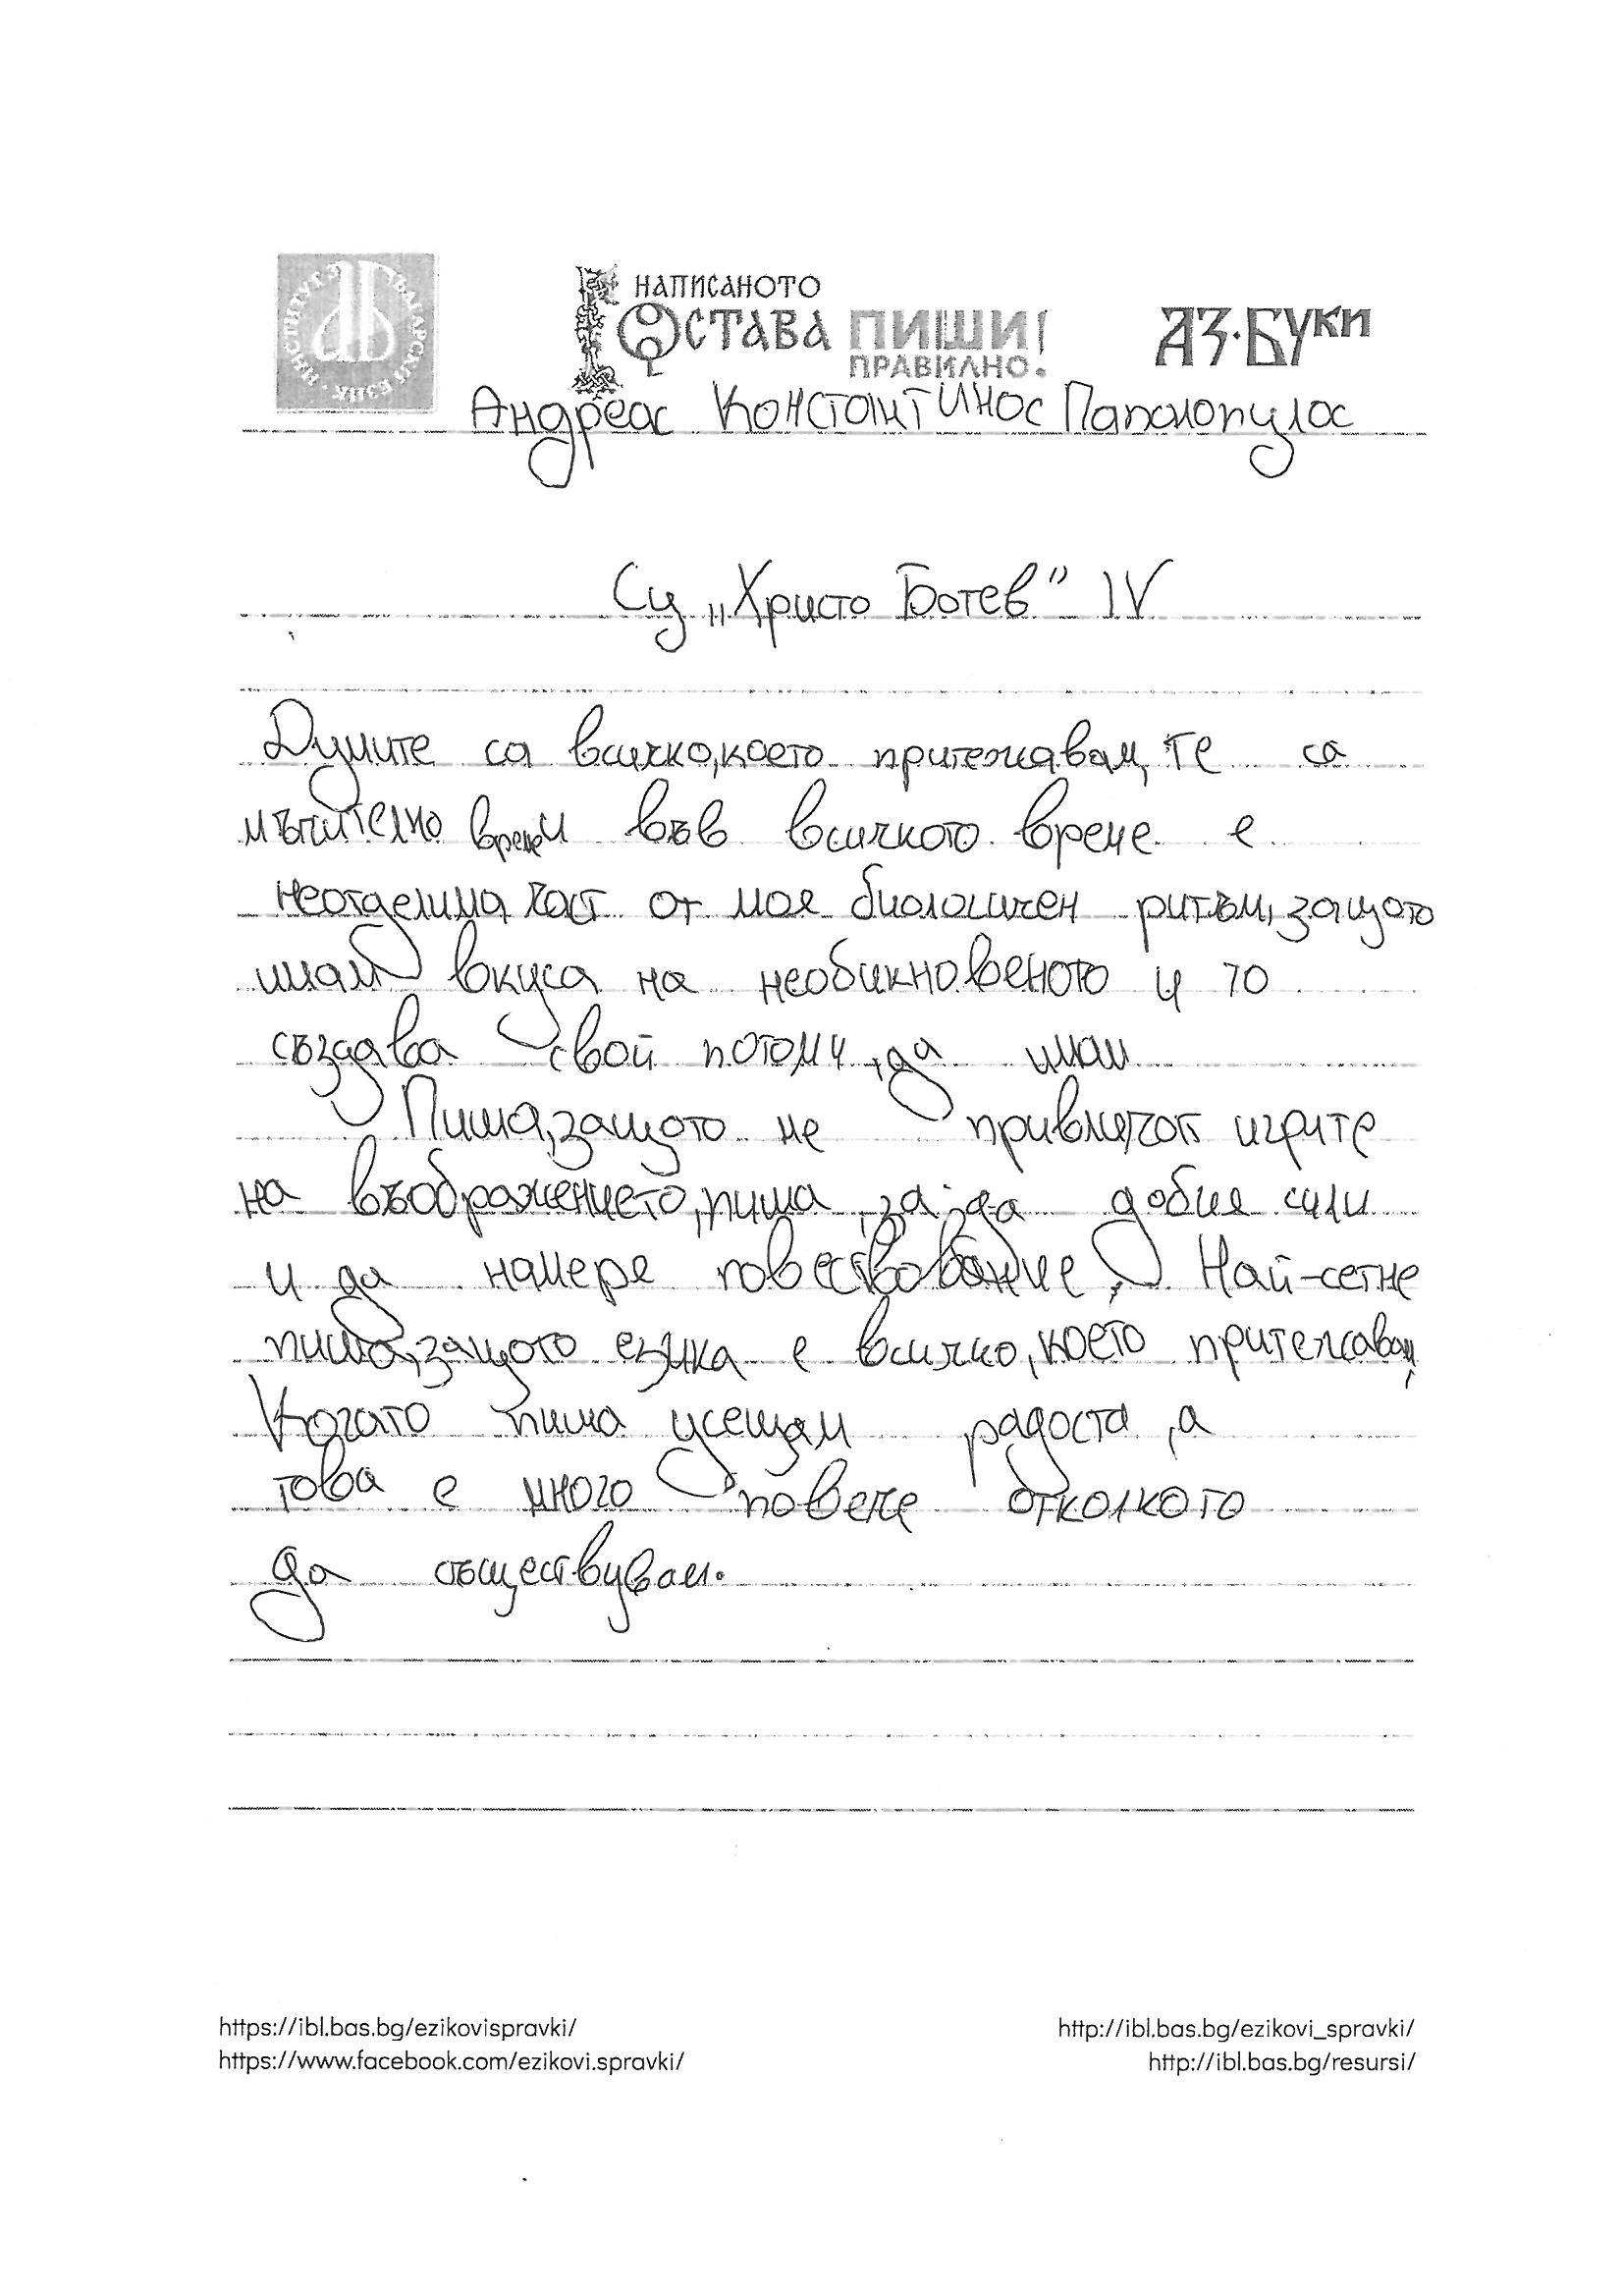 ИНСТИТУТ ЗА БЪЛГАРСКИ ЕЗИК
НАПИСАНОТО
ОСТАВА ПИШИ!
ПРАВИЛНО.
АЗ·БУКИ
Андреас Константинос
Су „Христо Ботев" IV
Думите са всичко,което притежавам, Те са
мъчително във всичкото време е
неотделима част от моя биологичен ритъм, защото
имам вкуса на необикновеното и то
създава свой потоми ,да имам
Пиша,защото ме привличат игрите
на въображението,пиша ,за да добия сили
и да намеря повествование, Най-сетне
пиша,защото езика е всичко,което притежавам,
Когато пиша усещам радоста ,а
това е много повече отколкото
да съществувам.
https://ibl.bas.bg/ezikovispravki/ http://ibl.bas.bg/ezikovi_spravki/
https://www.facebook.com/ezikovi.spravki/ http://ibl.bas.bg/resursi/